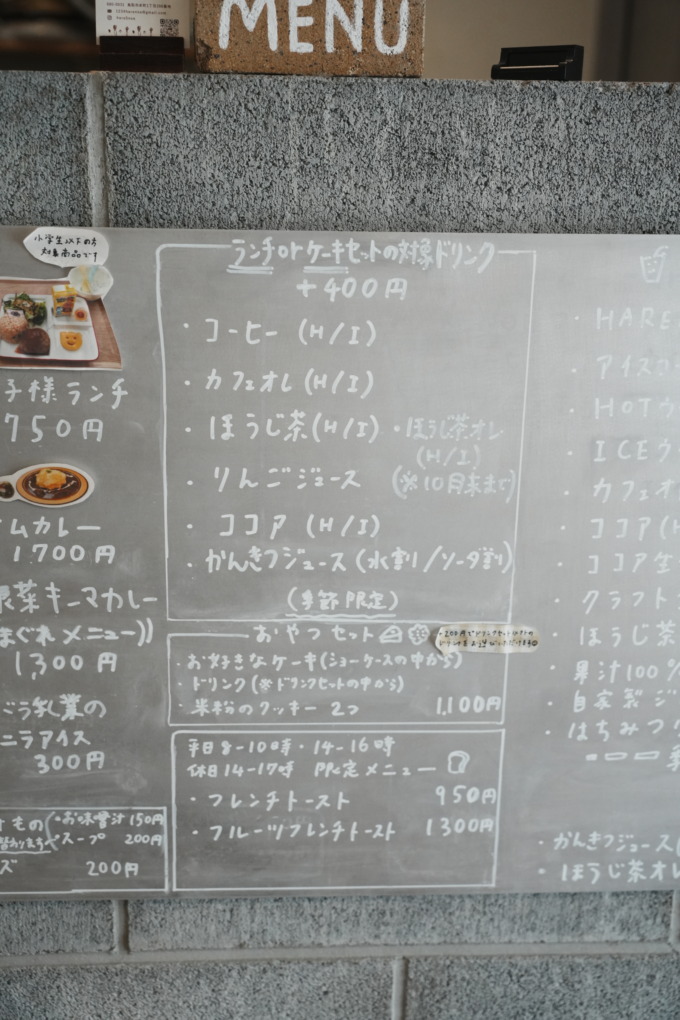 MENU
小学生以下の方
対象商品です
子様ランチ
750円
ムカレー
1700円
根菜キーマカレー
まぐれメニュー))
1,300円
ニラアイス
300円
・お味噌汁 150円
・スープ 200円
ズ 200円
ランチorケーキセットの対象ドリンク
+400円
・コーヒー (H/I)
・カフェオレ (H/I)
・ほうじ茶(H/I) ・ほうじ茶オレ
(H/I)
・りんごジュース (※10月末まで)
・ココア (H/I)
・かんきつジュース (水割り/ソーダ割)
(季節限定)
おやつセット
・お好きなケーキ(ショーケースの中から)
・ドリンク(※ドリンクセットの中から)
・米粉のクッキー 2つ 1,100円
平日8-10時・14-16時
休日14-17時 限定メニュー
・フレンチトースト 950円
・フルーツフレンチトースト 1300円
・HARE
・アイスコ
・HOTウ
・ICEウ
・カフェオ
・ココア(H
・ココア生
・クラフト
・ほうじ茶
・果汁100%
・自家製ジ
・はちみつ
・かんきつジュース(
・ほうじ茶オレ